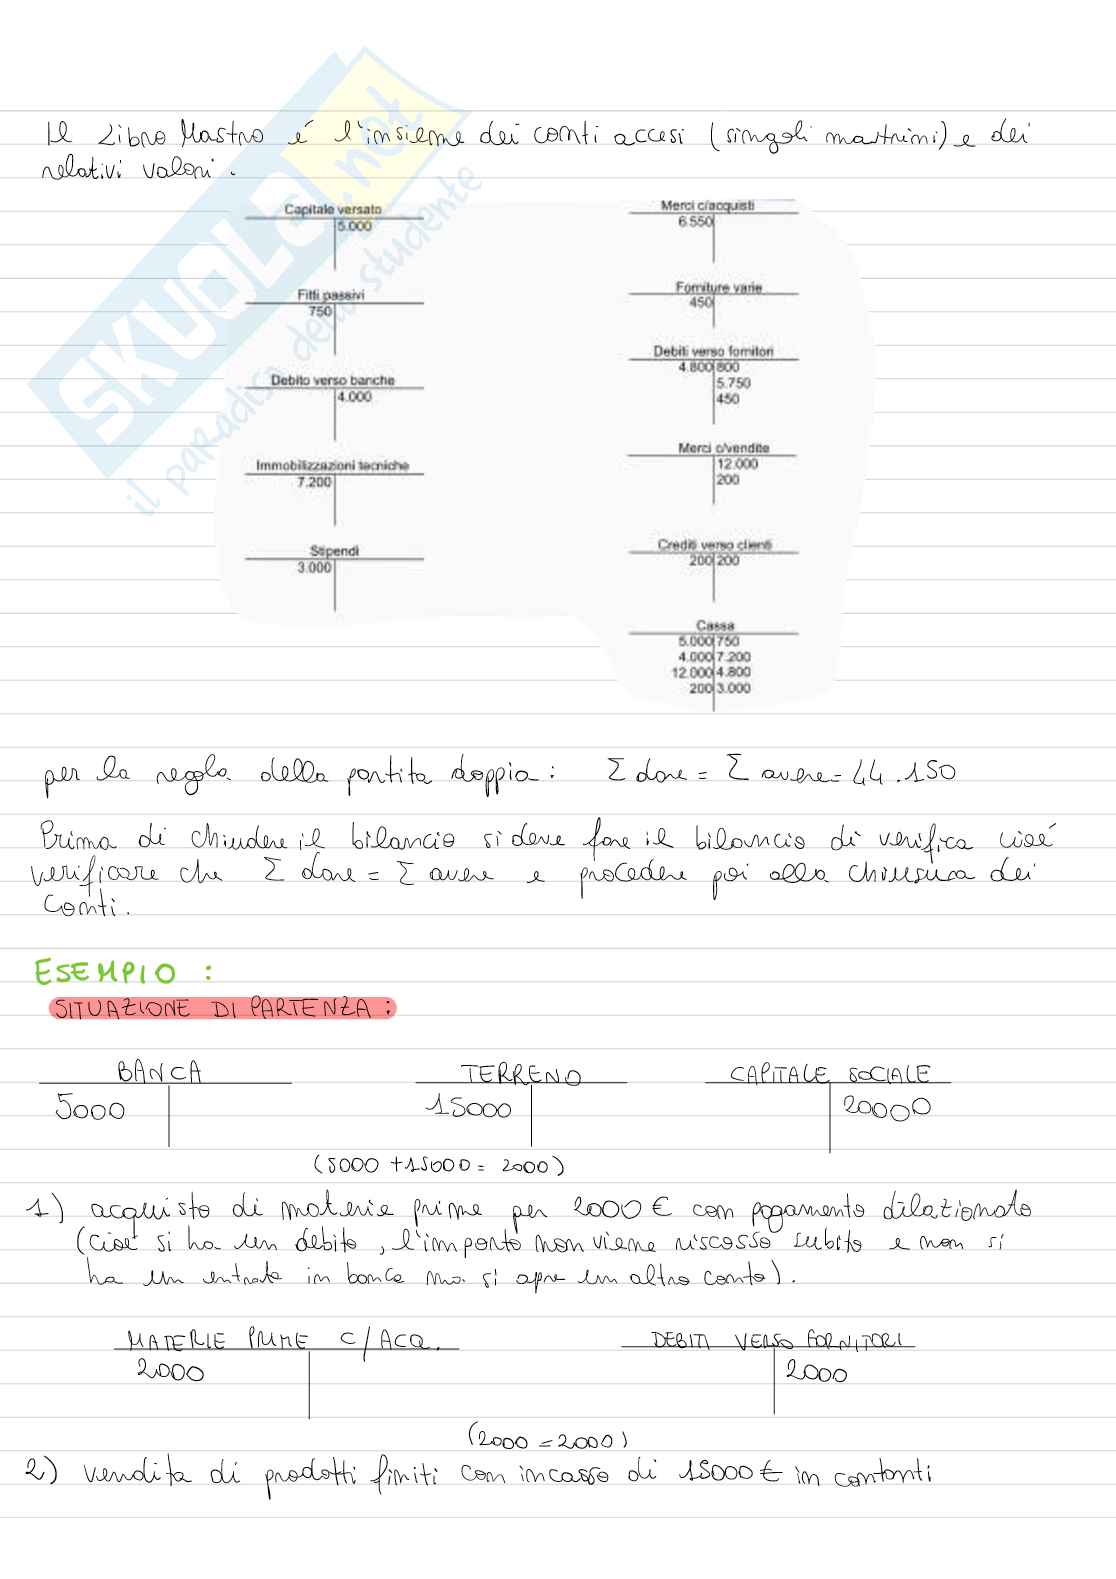 Il Libro Mastro é l'insieme dei conti accesi (singoli mastrini) e dei
relativi valori.
SKUOLA.net
il paradiso dello studente
Capitale versato
5.000
Fitti passivi
750
Debito verso banche
4.000
Immobilizzazioni tecniche
7.200
Stipendi
3.000
Merci c/acquisti
6.550
Forniture varie
450
Debiti verso fornitori
4.800 800
5.750
450
Merci c/vendite
12.000
200
Crediti verso clienti
200 200
Cassa
5.000 750
4.000 7.200
12.000 4.800
200 3.000
per la regola della partita doppia: Σ dare = Σ avere = 44.150
Prima di chiudere il bilancio si deve fare il bilancio di verifica cioé
verificare che Σ dare = Σ avere e procedere poi alla chiusura dei
conti.
ESEMPIO :
SITUAZIONE DI PARTENZA :
BANCA TERRENO CAPITALE SOCIALE
5000 15000 20000
(5000 + 15000 = 2000)
1) acquisto di materie prime per 2000 € con pagamento dilazionato
(cioé si ha un debito, l'importo non viene riscosso subito e non si
ha un entrata in banca ma si apre un altro conto).
MATERIE PRIME C/ACQ. DEBITI VERSO FORNITORI
2000 2000
(2000 = 2000)
2) vendita di prodotti finiti con incasso di 15000 € in contanti